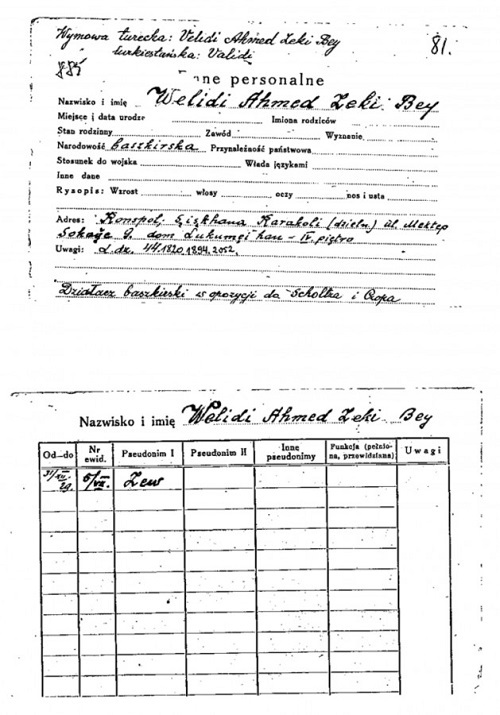 Wymowa turecka: Velidi Ahmed Zeki Bey
turkiestańska: Validi
81.
885
nne personalne
Nazwisko i imię Welidi Ahmed Zeki Bey
Miejsce i data urodze Imiona rodziców
Stan rodzinny Zawód Wyznanie
Narodowość baszkirska Przynależność państwowa
Stosunek do wojska Włada językami
Inne dane
Rysopis: Wzrost włosy oczy nos i usta
Adres: Konspol, Karakoli (dzieln.) ul. Mektep
Sokağe 9. dom Lukumçi han - IV. piętro
Uwagi: L.dz. 44. 1820, 1894, 2052.
Działacz baszkirski w opozycji do i
Nazwisko i imię Welidi Ahmed Zeki Bey
Od—do Nr ewid. Pseudonim I Pseudonim II Inne pseudonimy Funkcja (pełniona, przewidziana) Uwagi
31/XII. 29. 5/VII. Zew